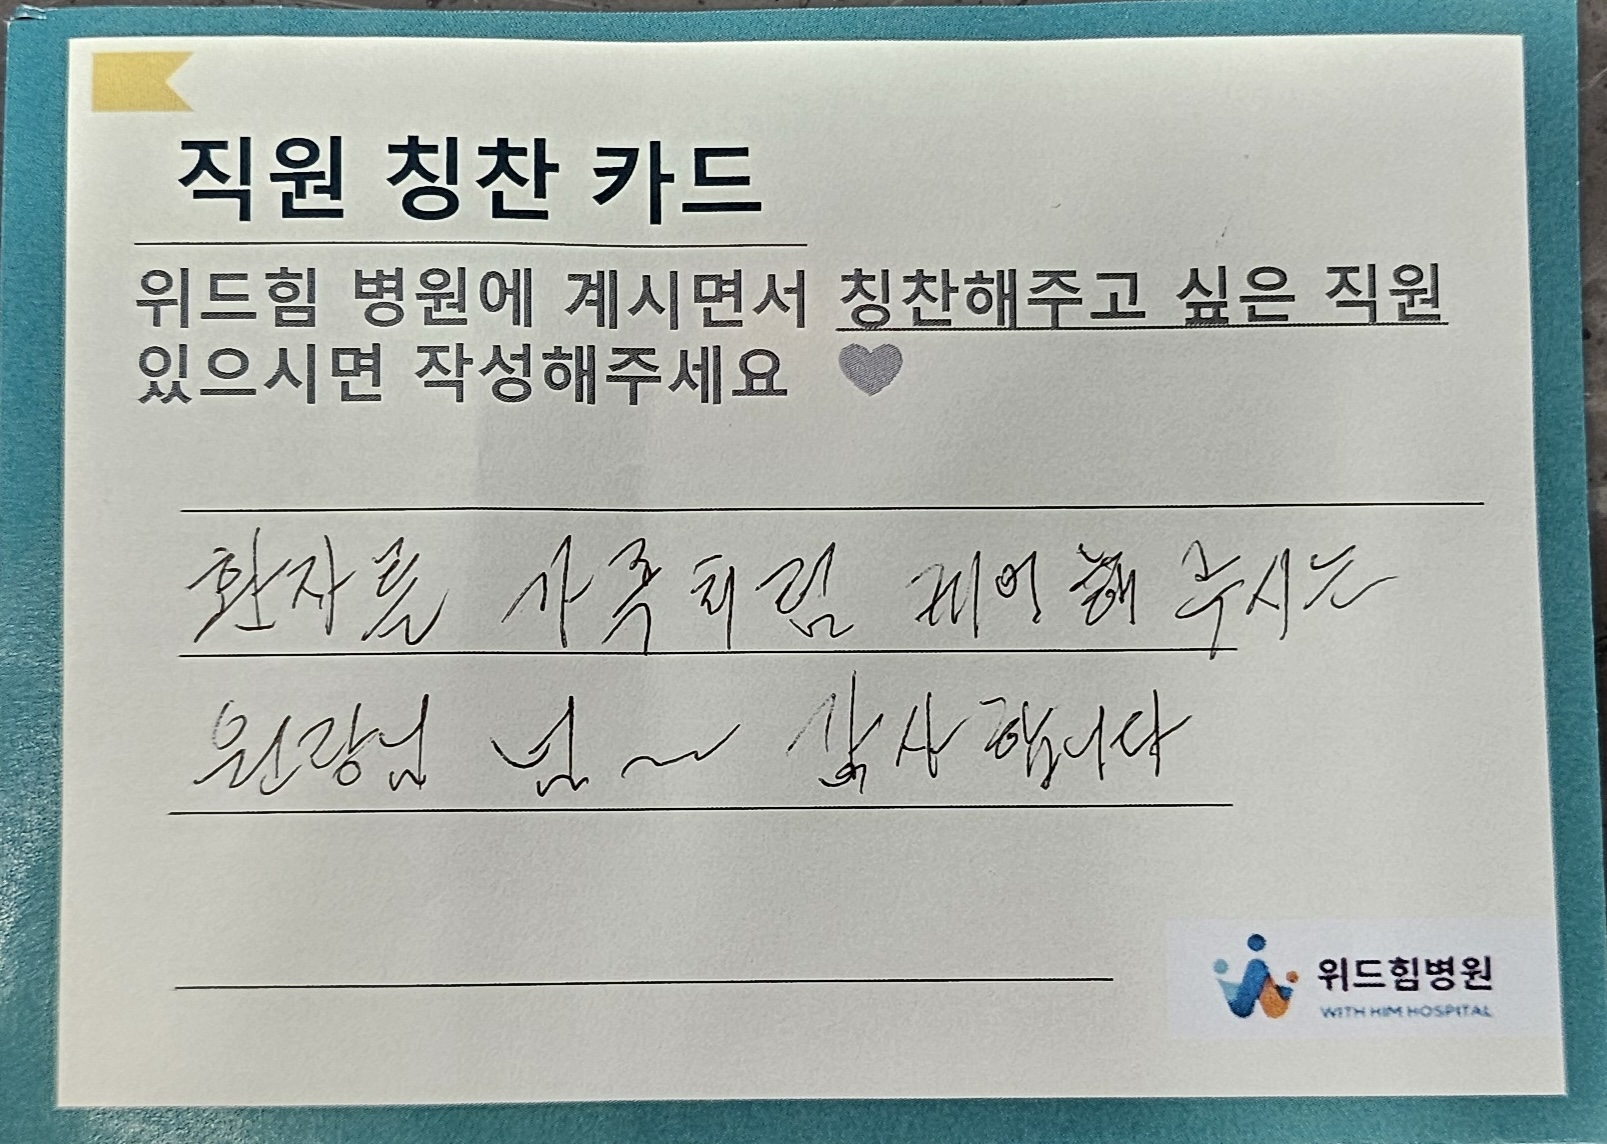 직원 칭찬 카드
위드힘 병원에 계시면서 칭찬해주고 싶은 직원
있으시면 작성해주세요
환자를 가족처럼 케어해 주시는
원장님 넘~~ 감사합니다
위드힘병원
WITH HIM HOSPITAL